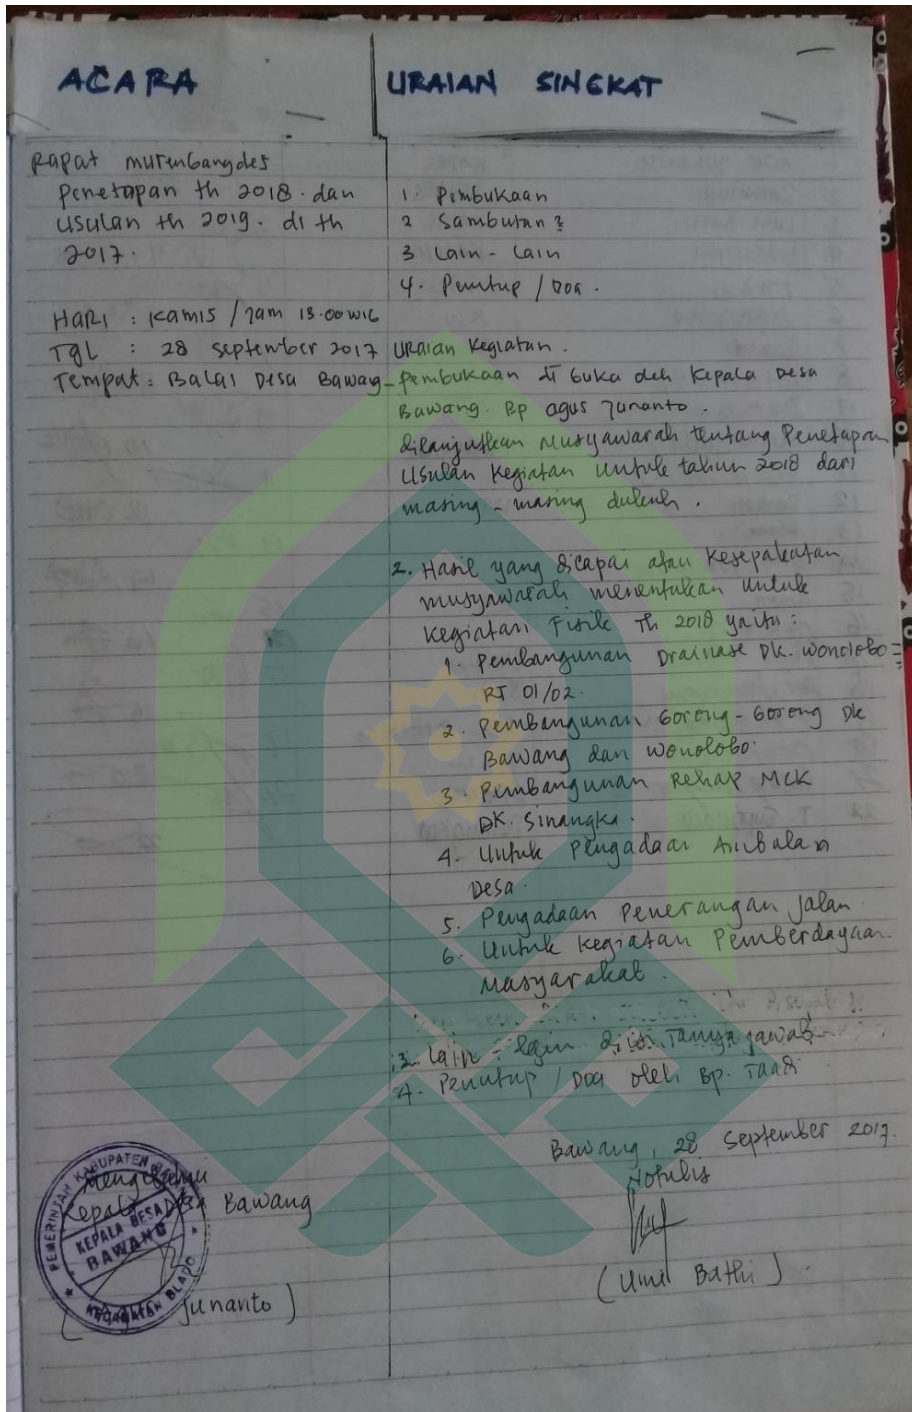 ACARA
URAIAN SINGKAT
Rapat musrenbangdes
Penetapan th 2018. dan
Usulan th 2019. di th
2017.
Hari : Kamis / Jam 13.00 WIB
Tgl : 28 September 2017
Tempat : Balai Desa Bawang
1. Pembukaan
2 Sambutan2
3 Lain - Lain
4. Penutup / Doa.
Uraian Kegiatan.
- Pembukaan di buka oleh Kepala Desa
Bawang. Bp agus Junanto.
dilanjutkan Musyawarah tentang Penetapan
Usulan Kegiatan Untuk tahun 2018 dari
masing - masing dukuh.
2. Hasil yang dicapai atau Kesepakatan
musyawarah menentukan untuk
kegiatan Fisik Th 2018 yaitu :
1. Pembangunan Drainase Dk. Wonolobo =
RT 01/02.
2. Pembangunan Gorong - Gorong Dk
Bawang dan Wonolobo.
3. Pembangunan Rehap MCK
DK. Sinangka.
4. Untuk Pengadaan Ambulan
Desa.
5. Pengadaan Penerangan Jalan
6. Untuk Kegiatan Pemberdayaan.
Masyarakat.
3. Lain - lain di isi Tanya jawab
4. Penutup / Doa oleh Bp.
Bawang, 28 September 2017.
Notulis
(Umi Bathi).
Mengetahui
Kepala Desa Bawang
( Junanto )
PEMERINTAH KABUPATEN
KEPALA DESA
BAWANG
KECAMATAN BLADO